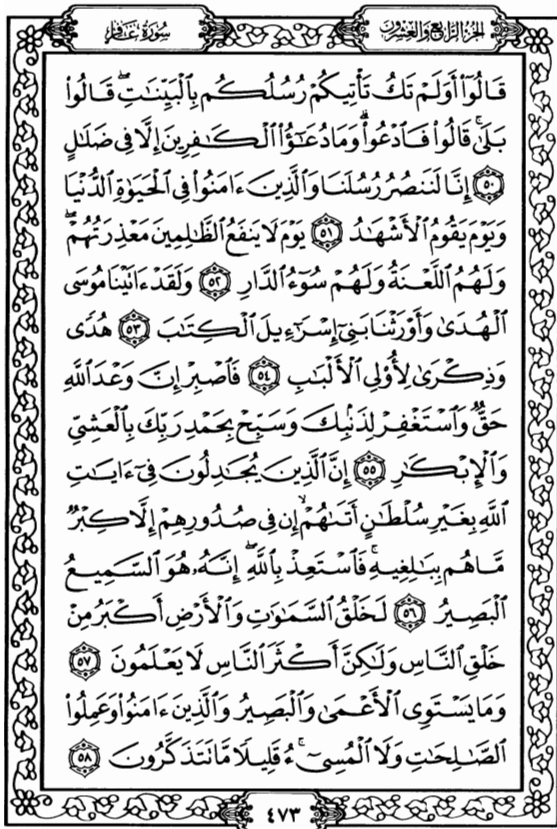 سُورَةُ غَافِرٍ
الجُزْءُ الرَّابِعُ وَالعِشْرُونَ
قَالُوٓا۟ أَوَلَمْ تَكُ تَأْتِيكُمْ رُسُلُكُم بِٱلْبَيِّنَٰتِ ۖ قَالُوا۟
بَلَىٰ ۚ قَالُوا۟ فَٱدْعُوا۟ ۗ وَمَا دُعَٰٓؤُا۟ ٱلْكَٰفِرِينَ إِلَّا فِى ضَلَٰلٍ
٥٠ إِنَّا لَنَنصُرُ رُسُلَنَا وَٱلَّذِينَ ءَامَنُوا۟ فِى ٱلْحَيَوٰةِ ٱلدُّنْيَا
وَيَوْمَ يَقُومُ ٱلْأَشْهَٰدُ ٥١ يَوْمَ لَا يَنفَعُ ٱلظَّٰلِمِينَ مَعْذِرَتُهُمْ ۖ
وَلَهُمُ ٱللَّعْنَةُ وَلَهُمْ سُوٓءُ ٱلدَّارِ ٥٢ وَلَقَدْ ءَاتَيْنَا مُوسَى
ٱلْهُدَىٰ وَأَوْرَثْنَا بَنِىٓ إِسْرَٰٓءِيلَ ٱلْكِتَٰبَ ٥٣ هُدًى
وَذِكْرَىٰ لِأُو۟لِى ٱلْأَلْبَٰبِ ٥٤ فَٱصْبِرْ إِنَّ وَعْدَ ٱللَّهِ
حَقٌّ وَٱسْتَغْفِرْ لِذَنۢبِكَ وَسَبِّحْ بِحَمْدِ رَبِّكَ بِٱلْعَشِىِّ
وَٱلْإِبْكَٰرِ ٥٥ إِنَّ ٱلَّذِينَ يُجَٰدِلُونَ فِىٓ ءَايَٰتِ
ٱللَّهِ بِغَيْرِ سُلْطَٰنٍ أَتَىٰهُمْ ۙ إِن فِى صُدُورِهِمْ إِلَّا كِبْرٌ
مَّا هُم بِبَٰلِغِيهِ ۚ فَٱسْتَعِذْ بِٱللَّهِ ۖ إِنَّهُۥ هُوَ ٱلسَّمِيعُ
ٱلْبَصِيرُ ٥٦ لَخَلْقُ ٱلسَّمَٰوَٰتِ وَٱلْأَرْضِ أَكْبَرُ مِنْ
خَلْقِ ٱلنَّاسِ وَلَٰكِنَّ أَكْثَرَ ٱلنَّاسِ لَا يَعْلَمُونَ ٥٧
وَمَا يَسْتَوِى ٱلْأَعْمَىٰ وَٱلْبَصِيرُ وَٱلَّذِينَ ءَامَنُوا۟ وَعَمِلُوا۟
ٱلصَّٰلِحَٰتِ وَلَا ٱلْمُسِىٓءُ ۚ قَلِيلًا مَّا تَتَذَكَّرُونَ ٥٨
٤٧٣